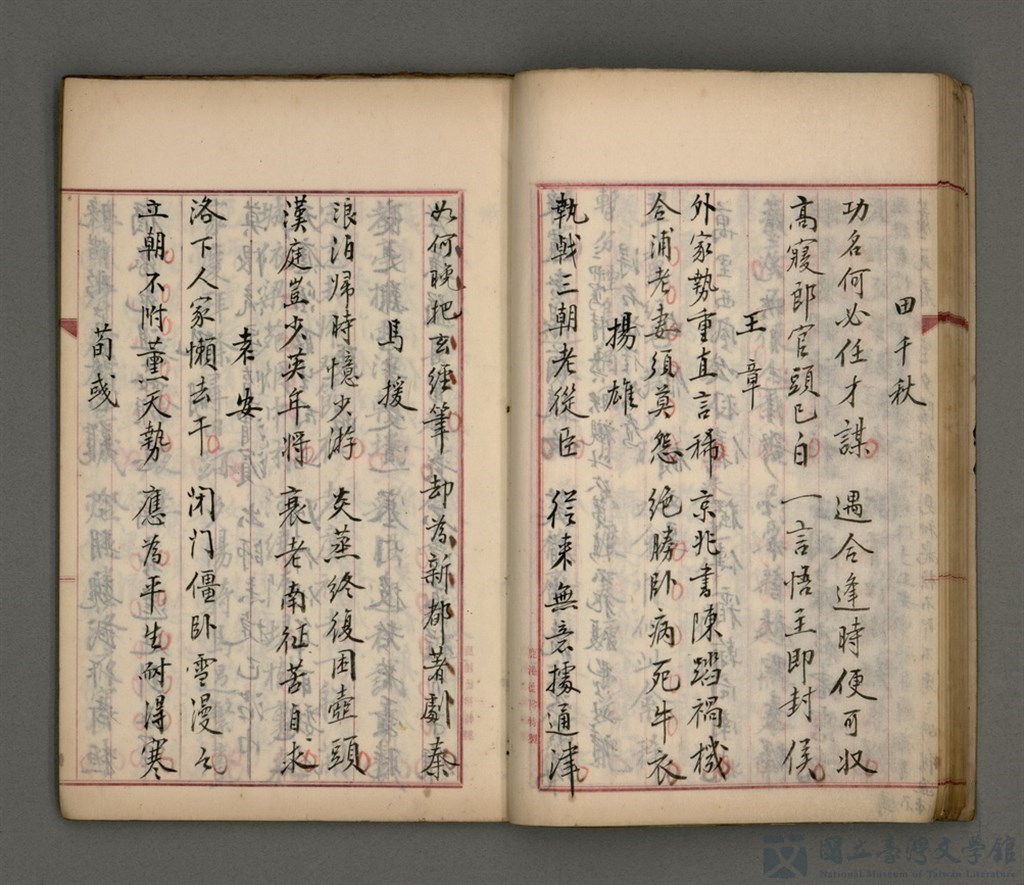 田千秋
功名何必任才謀 遇合逢時便可収
高寢郎官頭已白 一言悟主即封侯
王章
外家勢重直言稀 京兆書陳蹈禍機
合浦老妻須莫怨 絶勝卧病死牛衣
揚雄
執戟三朝老從臣 從来無意據通津
如何晚把玄經筆 却為新都著劇秦
馬援
浪泊歸時憶少游 炎蒸終復困壺頭
漢庭豈少英年将 衰老南征苦自求
袁安
洛下人家懶去干 闭门僵卧雪漫漫
立朝不附薰天勢 應為平生耐得寒
荀彧
國立臺灣文學館
National Museum of Taiwan Literature